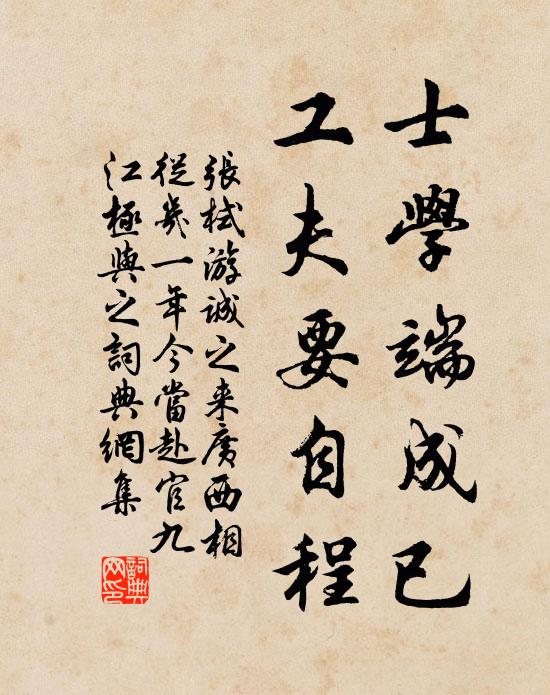 士學端成已
工夫要自程
張栻游誠之来廣西相
從幾一年今當赴官九
江極與之詞典網集
詞典网印